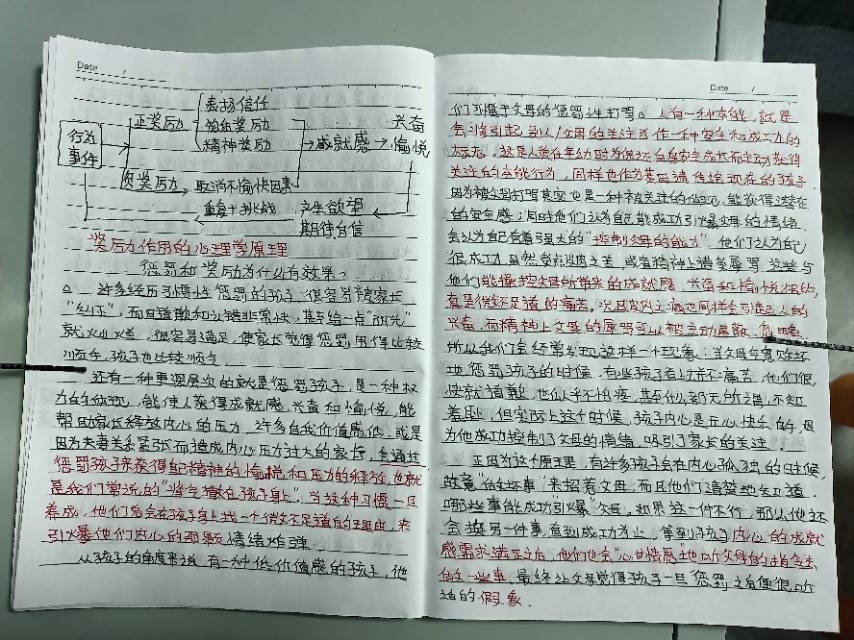 Date /
表扬信任
正奖励 物质奖励 兴奋
行为 精神奖励 →成就感→愉悦
事件
负奖励 → 取消不愉快因素
重复+挑战 产生欲望
期待自信
奖励作用的心理学原理
惩罚和奖励为什么有效果?
许多经历了惯性惩罚的孩子,很容易被家长
"纠正",而且道歉和认错非常快,甚至给一点"阳光"
就火山灿烂,很容易满足,使家长觉得惩罚用得比较
顺手,孩子也比较顺气.
还有一种更深层次的就是惩罚孩子,是一种权
力的体现,能使人获得成就感,兴奋和愉悦,能
帮助家长释放内心的压力,许多自我价值感低,或是
因为夫妻关系紧张而造成内心压力过大的家长,会通过
惩罚孩子来获得起精神的愉悦和压力的释放,也就
是我们常说的"将气撒在孩子身上".当这种习惯一旦
养成,他们总会在孩子身上找一个微不足道的理由,来
引爆他们内心的那颗情绪炸弹
从孩子的角度来说,有一种低价值感的孩子,他
Date /
们习惯于父母的惩罚性打骂。人有一种本能,就是
会将引起别人/父母的关注当作一种安全和成功的
标志。这是人类在年幼时为保证自身安全成长而主动获得
关注的本能行为,同样也作为基因遗传给现在的孩子
因为被父母打骂其实也是一种被关注的体现,能获得潜在
的安全感;同时他们认为自己能成功引爆父母的情绪
会认为自己有着强大的"控制父母的能力".他们认为自己
很成功,虽然受点皮肉之苦,或者精神上遭受辱骂,这些与
他们能操控父母所带来的成就感,兴奋和愉悦相比,
真是微不足道的痛苦。况且皮肉之痛也同样会引起人的
兴奋,而精神上父母的辱骂可以被主动屏蔽,
所以我们会经常发现这样一个现象:当父母气急败坏
地惩罚孩子的时候,有些孩子看上去并不痛苦,他们很
快就道歉,也似乎不怕疼,甚至什么都无所谓,不知
羞耻,但实际上这个时候,孩子内心是开心快乐的,因
为他成功控制了父母的情绪,吸引了家长的关注.
正因为这个原理,有许多孩子会在内心孤独的时候,
故意"做坏事"来招惹父母,而且他们清楚地知道,
哪些事能成功"引爆"父母.如果这一件不行,那么他还
会换另一件事,直到成功为止,等到孩子内心的成就
感需求满足之后,他们便会"心甘情愿"地听父母的指令去
做一些事,最终让父母觉得孩子一旦惩罚之后便很听
话的假象.